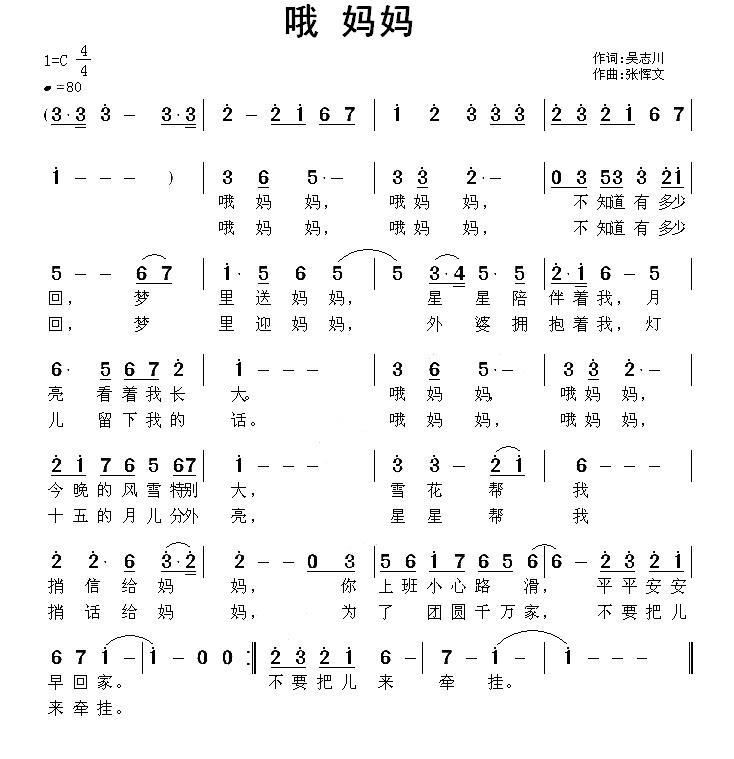 哦 妈妈
1=C 4/4
作词:吴志川
♩=80
作曲:张恽文
(3̇·3̇ 3̇ – 3̇·3̇ | 2̇ – 2̇ 1̇ 6 7 | 1̇ 2̇ 3̇ 3̇ 3̇ | 2̇ 3̇ 2̇ 1̇ 6 7 |
1̇ – – – ) | 3 6 5· – | 3 3̇ 2̇· – | 0 3 53 3̇ 2̇1̇ |
哦 妈 妈, 哦 妈 妈, 不 知道 有 多少
哦 妈 妈, 哦 妈 妈, 不 知道 有 多少
5 – – 6 7 | 1̇· 5 6 5 | 5 3·4 5· 5 | 2̇·1̇ 6 – 5 |
回, 梦 里 送 妈 妈, 星 星 陪 伴 着 我, 月
回, 梦 里 迎 妈 妈, 外 婆 拥 抱 着 我, 灯
6· 5 6 7 2̇ | 1̇ – – – | 3 6 5· – | 3 3̇ 2̇· – |
亮 看 着 我 长 大。 哦 妈 妈, 哦 妈 妈,
儿 留 下 我 的 话。 哦 妈 妈, 哦 妈 妈,
2̇ 1̇ 7 6 5 67 | 1̇ – – – | 3̇ 3̇ – 2̇ 1̇ | 6 – – – |
今 晚 的 风 雪 特别 大, 雪 花 帮 我
十 五 的 月 儿 分外 亮, 星 星 帮 我
2̇ 2̇· 6 3̇·2̇ | 2̇ – – 0 3 | 5 6 1̇ 7 6 5 6 | 6 – 2̇ 3̇ 2̇ 2̇ |
捎 信 给 妈 妈, 你 上 班 小 心 路 滑, 平 平 安 安
捎 话 给 妈 妈, 为 了 团 圆 千 万 家, 不 要 把 儿
6 7 1̇ – | 1̇ – 0 0 :‖ 2̇ 3̇ 2̇ 1̇ 6 – | 7 – 1̇ – | 1̇ – – – ‖
早 回 家。 不 要 把 儿 来 牵 挂。
来 牵 挂。